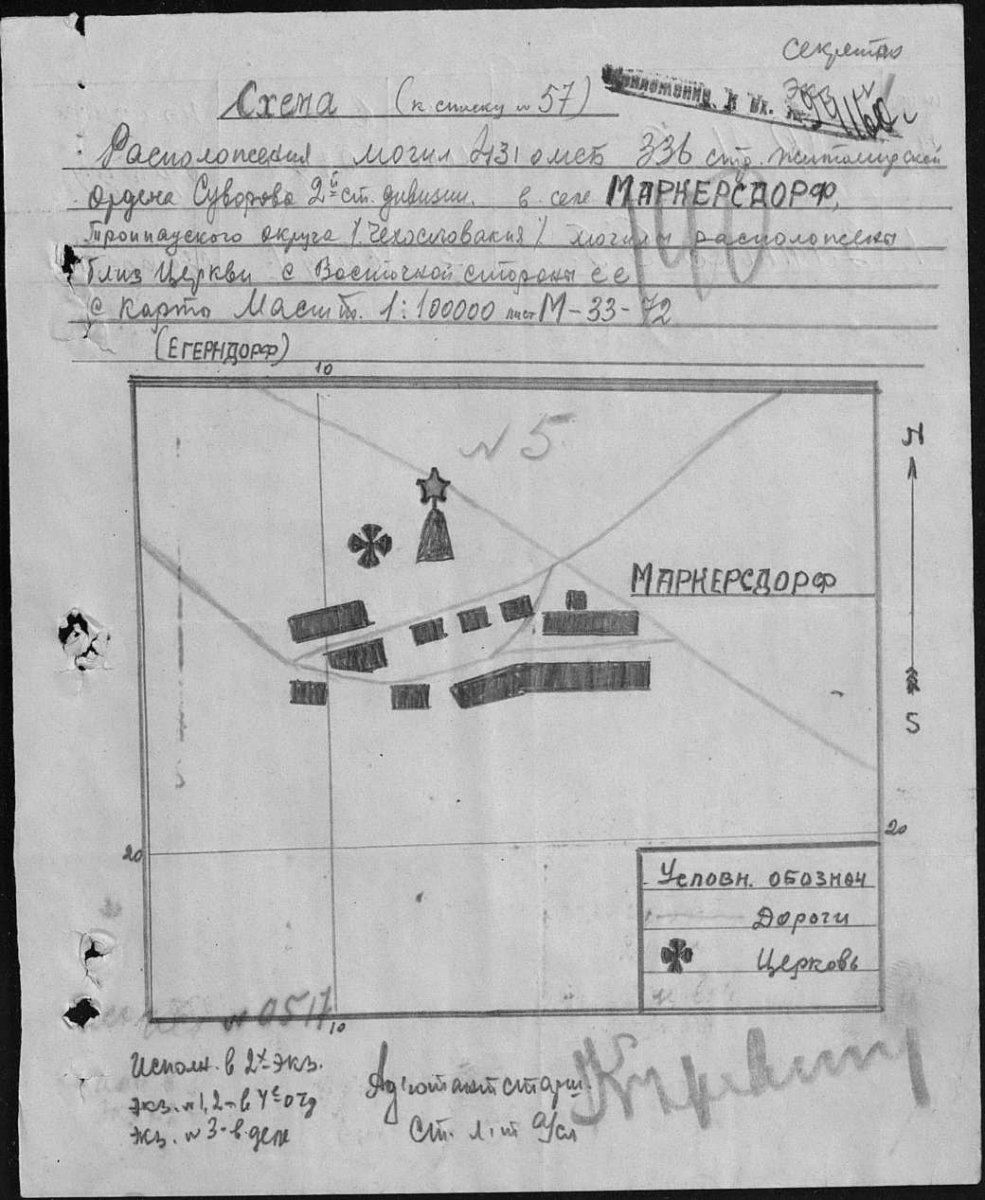 Секретно
Схема (к списку № 57)
Приложение к вх. №
Расположения могил 431 омсб 336 стр. Житомирской
Ордена Суворова 2й ст. дивизии. в селе МАРКЕРСДОРФ,
Троппауского округа /Чехословакия/ могилы расположены
близ Церкви с Восточной стороны ее
С карты Масшт. 1:100000 лист М-33-72
(ЕГЕРНДОРФ)
140
10
№ 5
N
МАРКЕРСДОРФ
S
20
20
Условн. обознач
Дороги
Церковь
№ 0517
10
Исполн. в 2х экз.
экз. №1,2-в 4е отд
экз. № 3-в деле
Адъютант старш.
Ст. л-т а/сл